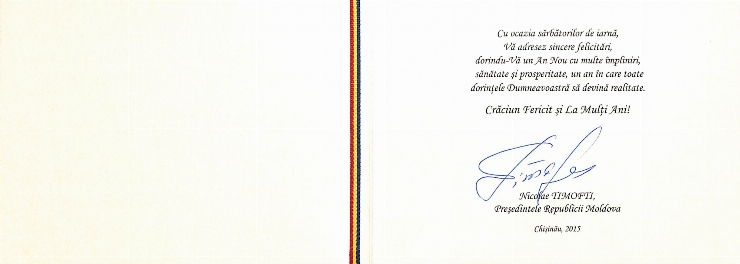 Cu ocazia sărbătorilor de iarnă,
Vă adresez sincere felicitări,
dorindu-Vă un An Nou cu multe împliniri,
sănătate și prosperitate, un an în care toate
dorințele Dumneavoastră să devină realitate.
Crăciun Fericit și La Mulți Ani!
Nicolae TIMOFTI,
Președintele Republicii Moldova
Chișinău, 2015